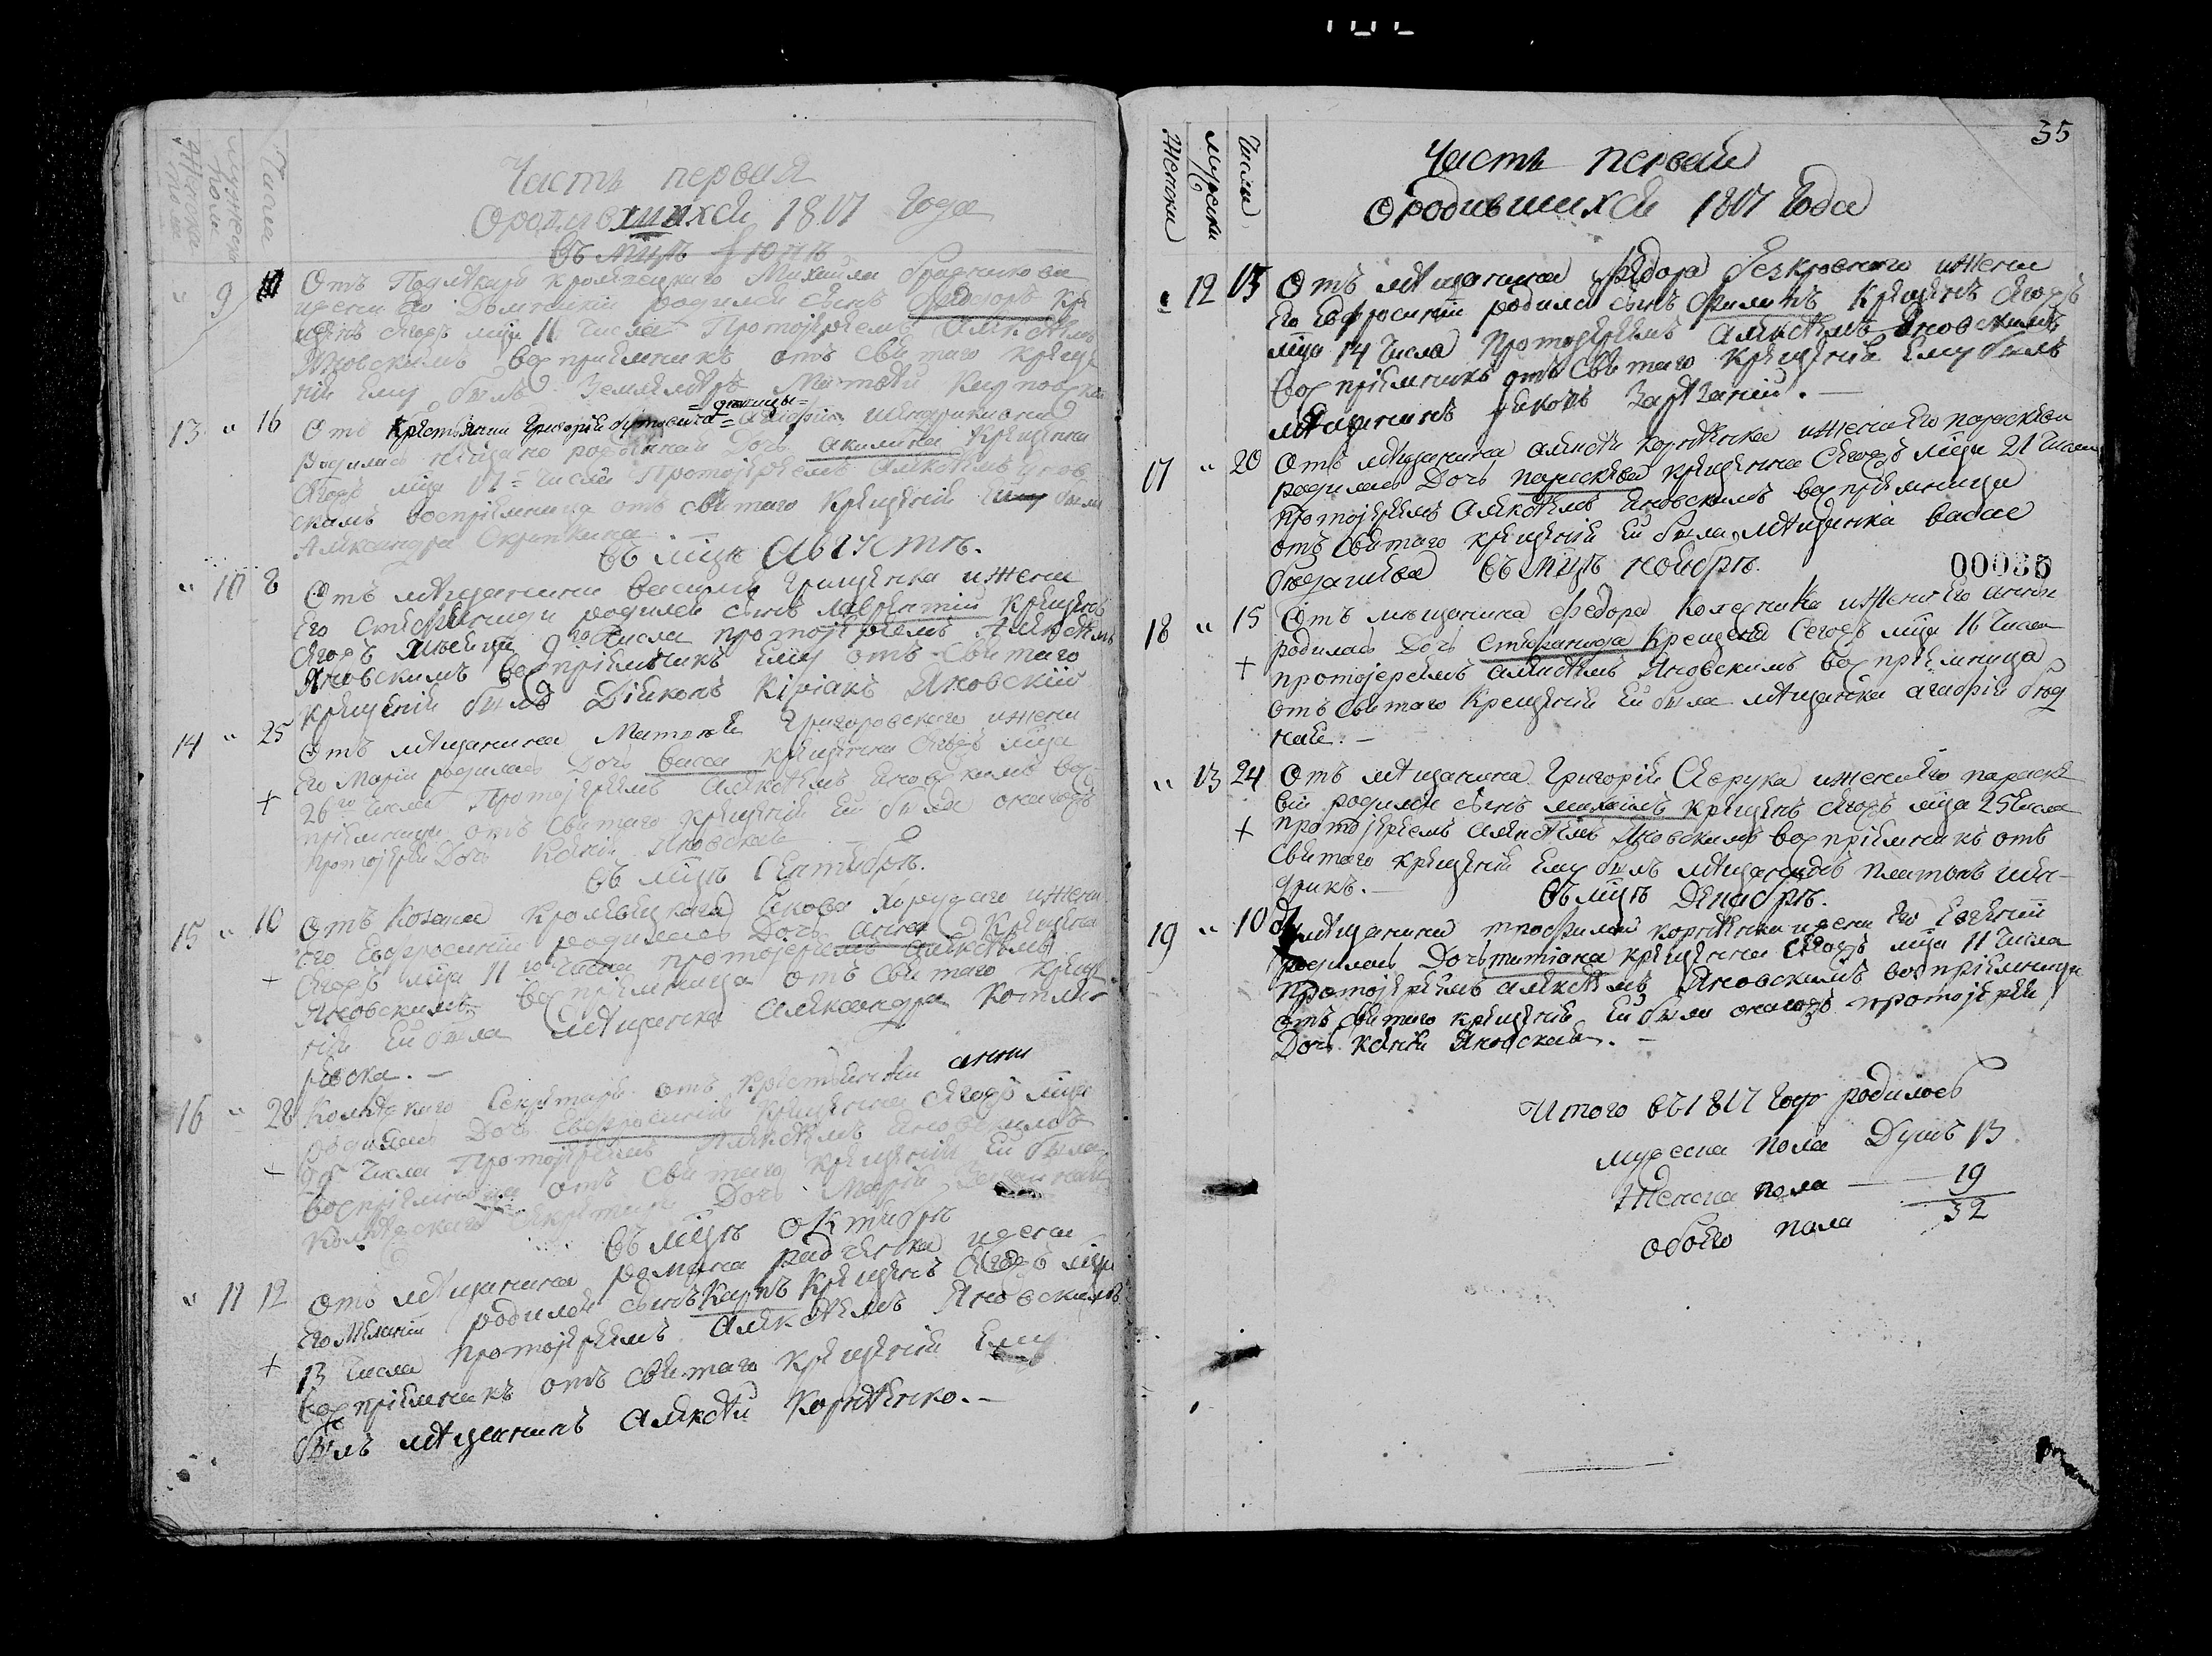 Числа
мужеска
пола
Женска
пола
Часть первая
О родившихся 1817 года
въ мцѣ Іюнѣ
9 10 Отъ Кролевецкаго Михаила
жени его Домникіи родился сынъ Феодоръ Кре
щенъ Сегожъ мца 11 числа Протоіереемъ Алексѣемъ
Яновскимъ воспріемникъ отъ святаго креще
нія ему былъ Землемѣръ Матвѣй
13 " 16 Отъ Крестьянки Григорія = дѣвицы = Агафіи
родилась незаконно рожденная Дочь Акилина Крещенна
Сегожъ мца 17 = числа Протоіереемъ Алексѣемъ Янов
скимъ воспріемница отъ святаго Крещенія Ему была
Александра Скрипкина
въ мцѣ Августѣ.
" 10 8 Отъ мѣщанина Василія Грищенка и жени
Его Стефаниды родился сынъ Лаврентій Крещенъ
Сегожъ мѣсяца 9го числа протоіереемъ Алексѣемъ
Яновскимъ воспріемникъ Ему отъ Святаго
крещенія былъ Діяконъ Киріакъ Яновскій
14 " 25 Отъ мѣщанина Матвѣя Григоровского и жени
Его Маріи родилась Дочь Васса крещенна Сегожъ мца
+ 26го числа Протоіереемъ Алексѣемъ Яновскимъ вос-
пріемница отъ Святаго крещенія Ей была онагожъ
протоіерея Дочь Ксенія Яновская
въ мцѣ Сентябрѣ.
15 " 10 Отъ Козака Кролевецкаго Якова и жени
его Евфросиніи родилась Дочь Анна Крещена
+ Сегожъ мца 11го числа протоіереемъ Алексѣемъ
Яновскимъ воспріемница отъ Святаго креще-
нія Ей была мѣщанка Александра Котля-
ревска. –
16 " 28 Колѣжскаго Секретаря отъ крестьянки анни
родилась Дочь Евфросинія Крещенна Сегожъ мца
+ 29 числа Протоіереемъ Алексѣемъ Яновскимъ
воспріемница отъ Святаго крещенія Ей была
Колѣжскаго Секретаря Дочь Марія
въ мцѣ октябрѣ
" 11 12 Отъ мѣщанина романа радченка жени
Его Меланіи родился сынъ Карпъ крещенъ Сегожъ мца
+ 13 числа протоіереемъ Алексѣемъ Яновскимъ
воспріемникъ отъ святаго крещенія Ему
былъ мѣщанинъ Алексѣй Корнѣенко. –
35
Числа
Мужски
Женски
Часть первая
О родившихся 1817 Года
" 12 13 Отъ мѣщанина Федора безкровнаго и жени
Его Евфросиніи родился сынъ Филипъ Крещенъ Сегожъ
мца 14 числа Протоіереемъ Алексѣемъ Яновскимъ
воспріемникъ отъ Святаго крещенія Ему былъ
мѣщанинъ Яковъ
17 " 20 Отъ мѣщанина алексѣя корнѣенка и жени Его параскевіи
родилась Дочь параскева крещенна Сегожъ мца 21 числа
Протоіереемъ Алексѣемъ Яновскимъ воспріемница
отъ святаго крещенія Ей была мѣщанка васса
въ мцѣ ноябрѣ.
00035
18 " 15 Отъ мѣщанина Федора Колесника и жени Его анни
родилась Дочь Стефанида Крещена Сегожъ мца 16 числа
+ протоіереемъ алексѣемъ Яновскимъ воспріемница
отъ Святаго Крещенія Ей была мѣщанка агафія буд
ная. –
" 13 24 Отъ мѣщанина Григорія Сѣрука и жени Его параске
віи родился сынъ михаилъ крещенъ Сегожъ мца 25 числа
+ протоіереемъ алексѣемъ Яновскимъ воспріемникъ отъ
Святаго крещенія Ему былъ мѣщанинъ Платонъ шин-
дрикъ. –
въ мцѣ Декабрѣ.
19 " 10 мѣщанина трофима корнѣенка жени Его Евгеніи
родилась Дочь татіана крещенна Сегожъ мца 11 числа
протоіереемъ алексѣемъ Яновскимъ воспріемница
отъ святаго крещенія Ей была онагожъ протоіерея
Дочь Ксенія Яновская. –
Итого въ 1817 году родилось
мужеска пола Душъ 13
женска пола — 19
обоего пола 32